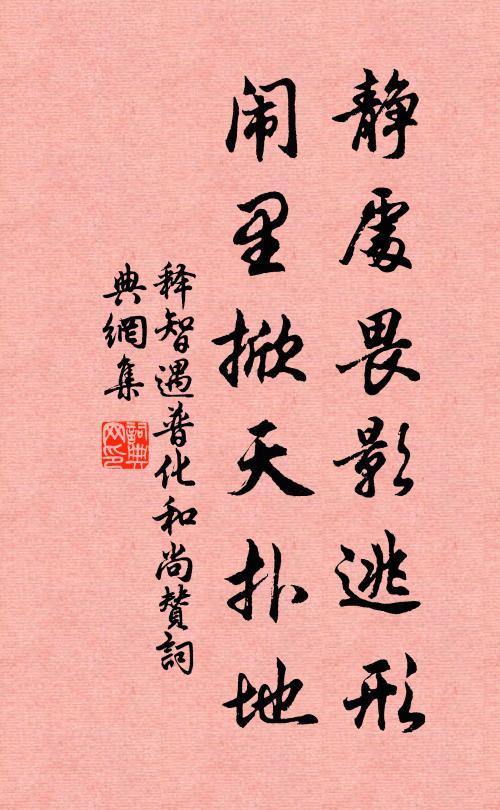 静處畏影逃形
闹里掀天扑地
释智遇普化和尚赞詞
典網集
詞典
网印